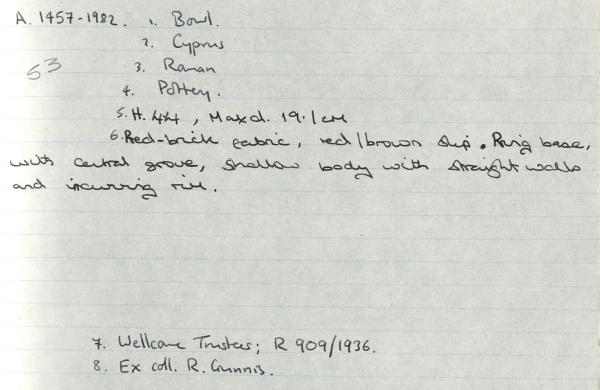 A. 1457-1982. 1. Bowl.
53
2. Cyprus
3. Roman
4. Pottery.
5. H. 4.4, Max d. 19.1cm
6. Red-brick fabric, red/brown slip. Ring base,
with central groove, shallow body with straight walls
and incurving rim.
7. Wellcome Trustees; R 909/1936.
8. Ex coll. R. Gunnis.